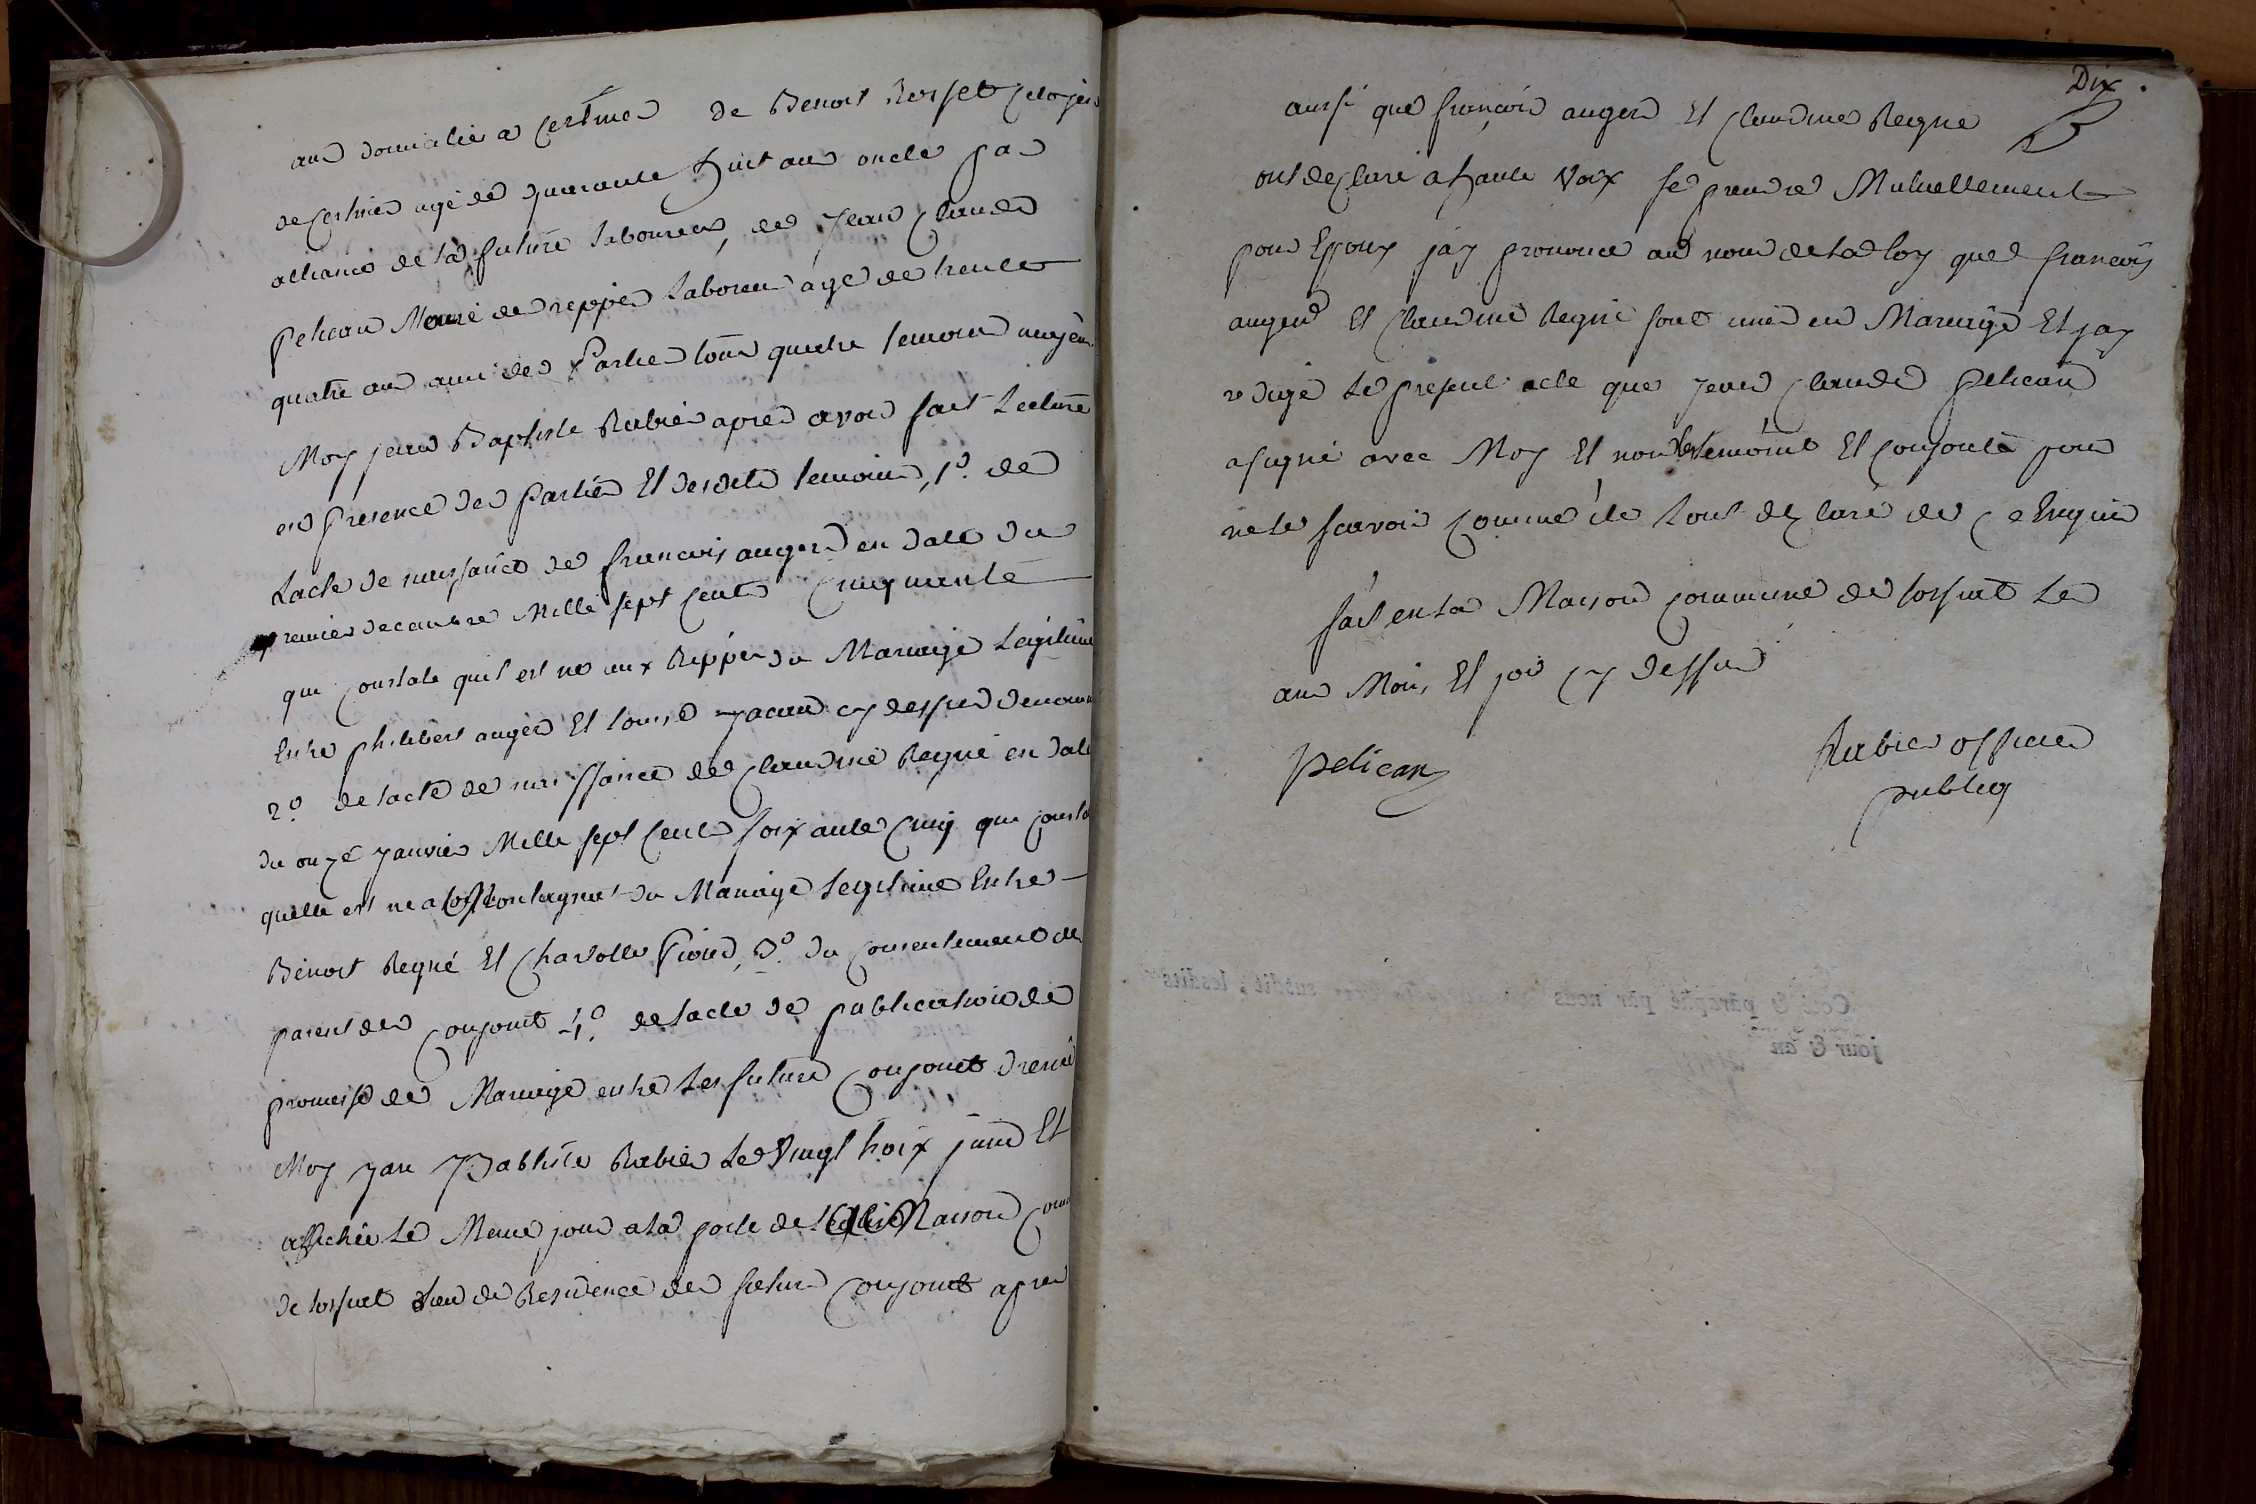 ans domicilié a Certines de Benoit Rosset Citoyen
de Certines agé de quarante huit ans oncle par
alliance de la future laboureur, de Jean Claude
Pelican Maire de reppes Laboureur agé de trente
quatre ans ami des Parties tous quatre temoins
Moy jean Baptiste Rubier apres avoir fait Lecture
en presence des parties Et desdits temoins, 1º. de
Lacte de naissance de francois auger en date du
premier decembre Mille sept cents Cinquante
qui constate quil est né aux Reppes du Mariage Legitime
Entre philibert auger Et Louise cy dessus
2º. de lacte de naissance de Claudine Regné en date
du onze janvier Mille sept Cents soixante Cinq qui
quelle est né a du Mariage Legitime Entre
Benoit Regné Et Charlotte 3º. du consentement des
parents des conjoint 4º. de lacte de publication de
promesse de Mariage entre Les futurs Conjoint
Moy jan Babtiste Rubier Le Vingt troix juin Et
affichée Le Meme jour a la porte de Maison
de lieu de Residence des futurs Conjoints apres
Dix
aussi que françois auger Et Claudine Regne
ont declaré a haute Voix se prendre Mutuellement
pour Epoux jay prononcé au nom de La loy que francois
auger Et Claudine Regné sont unis en Mariage Et jay
redigé Le present acte que jean Claude Pelican
a signé avec Moy Et non les temoint Et Conjoints pour
ne le scavoir comme ils Lont declaré de ce Enquis
fait en La Maison commune de Les
ans Mois Et jour cy dessus
Pelican
Rubier officier
publicq
Coté & paraphé par nous susdit, lesdits
jour & an